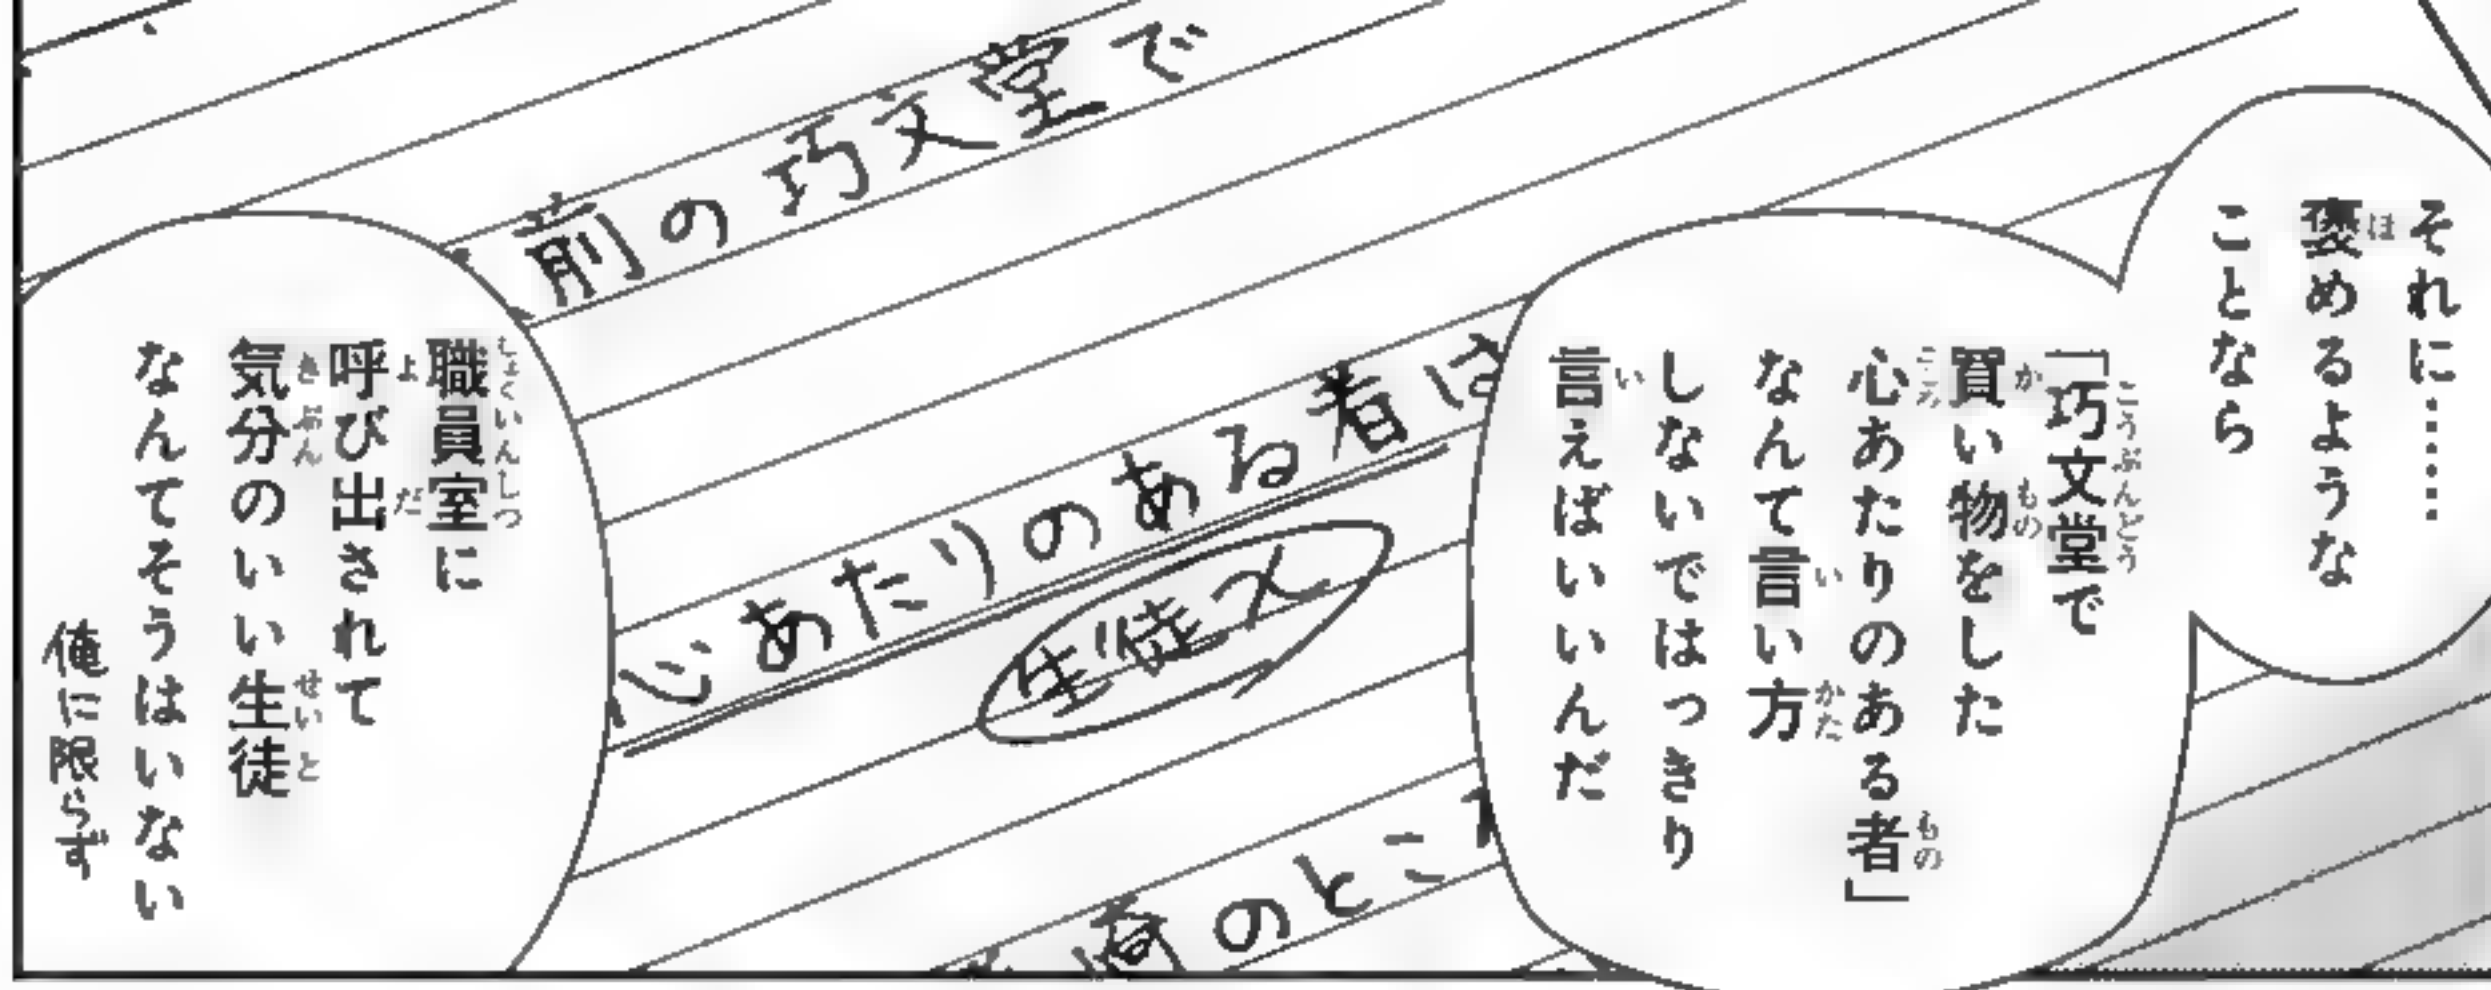 それに……
褒めるような
ことなら
「巧文堂で
買い物をした
心あたりのある者」
なんて言い方
しないではっきり
言えばいいんだ
前の巧文堂で
心あたりのある者は
生徒×
崎のところ
職員室に
呼び出されて
気分のいい生徒
なんてそうはいない
俺に限らず